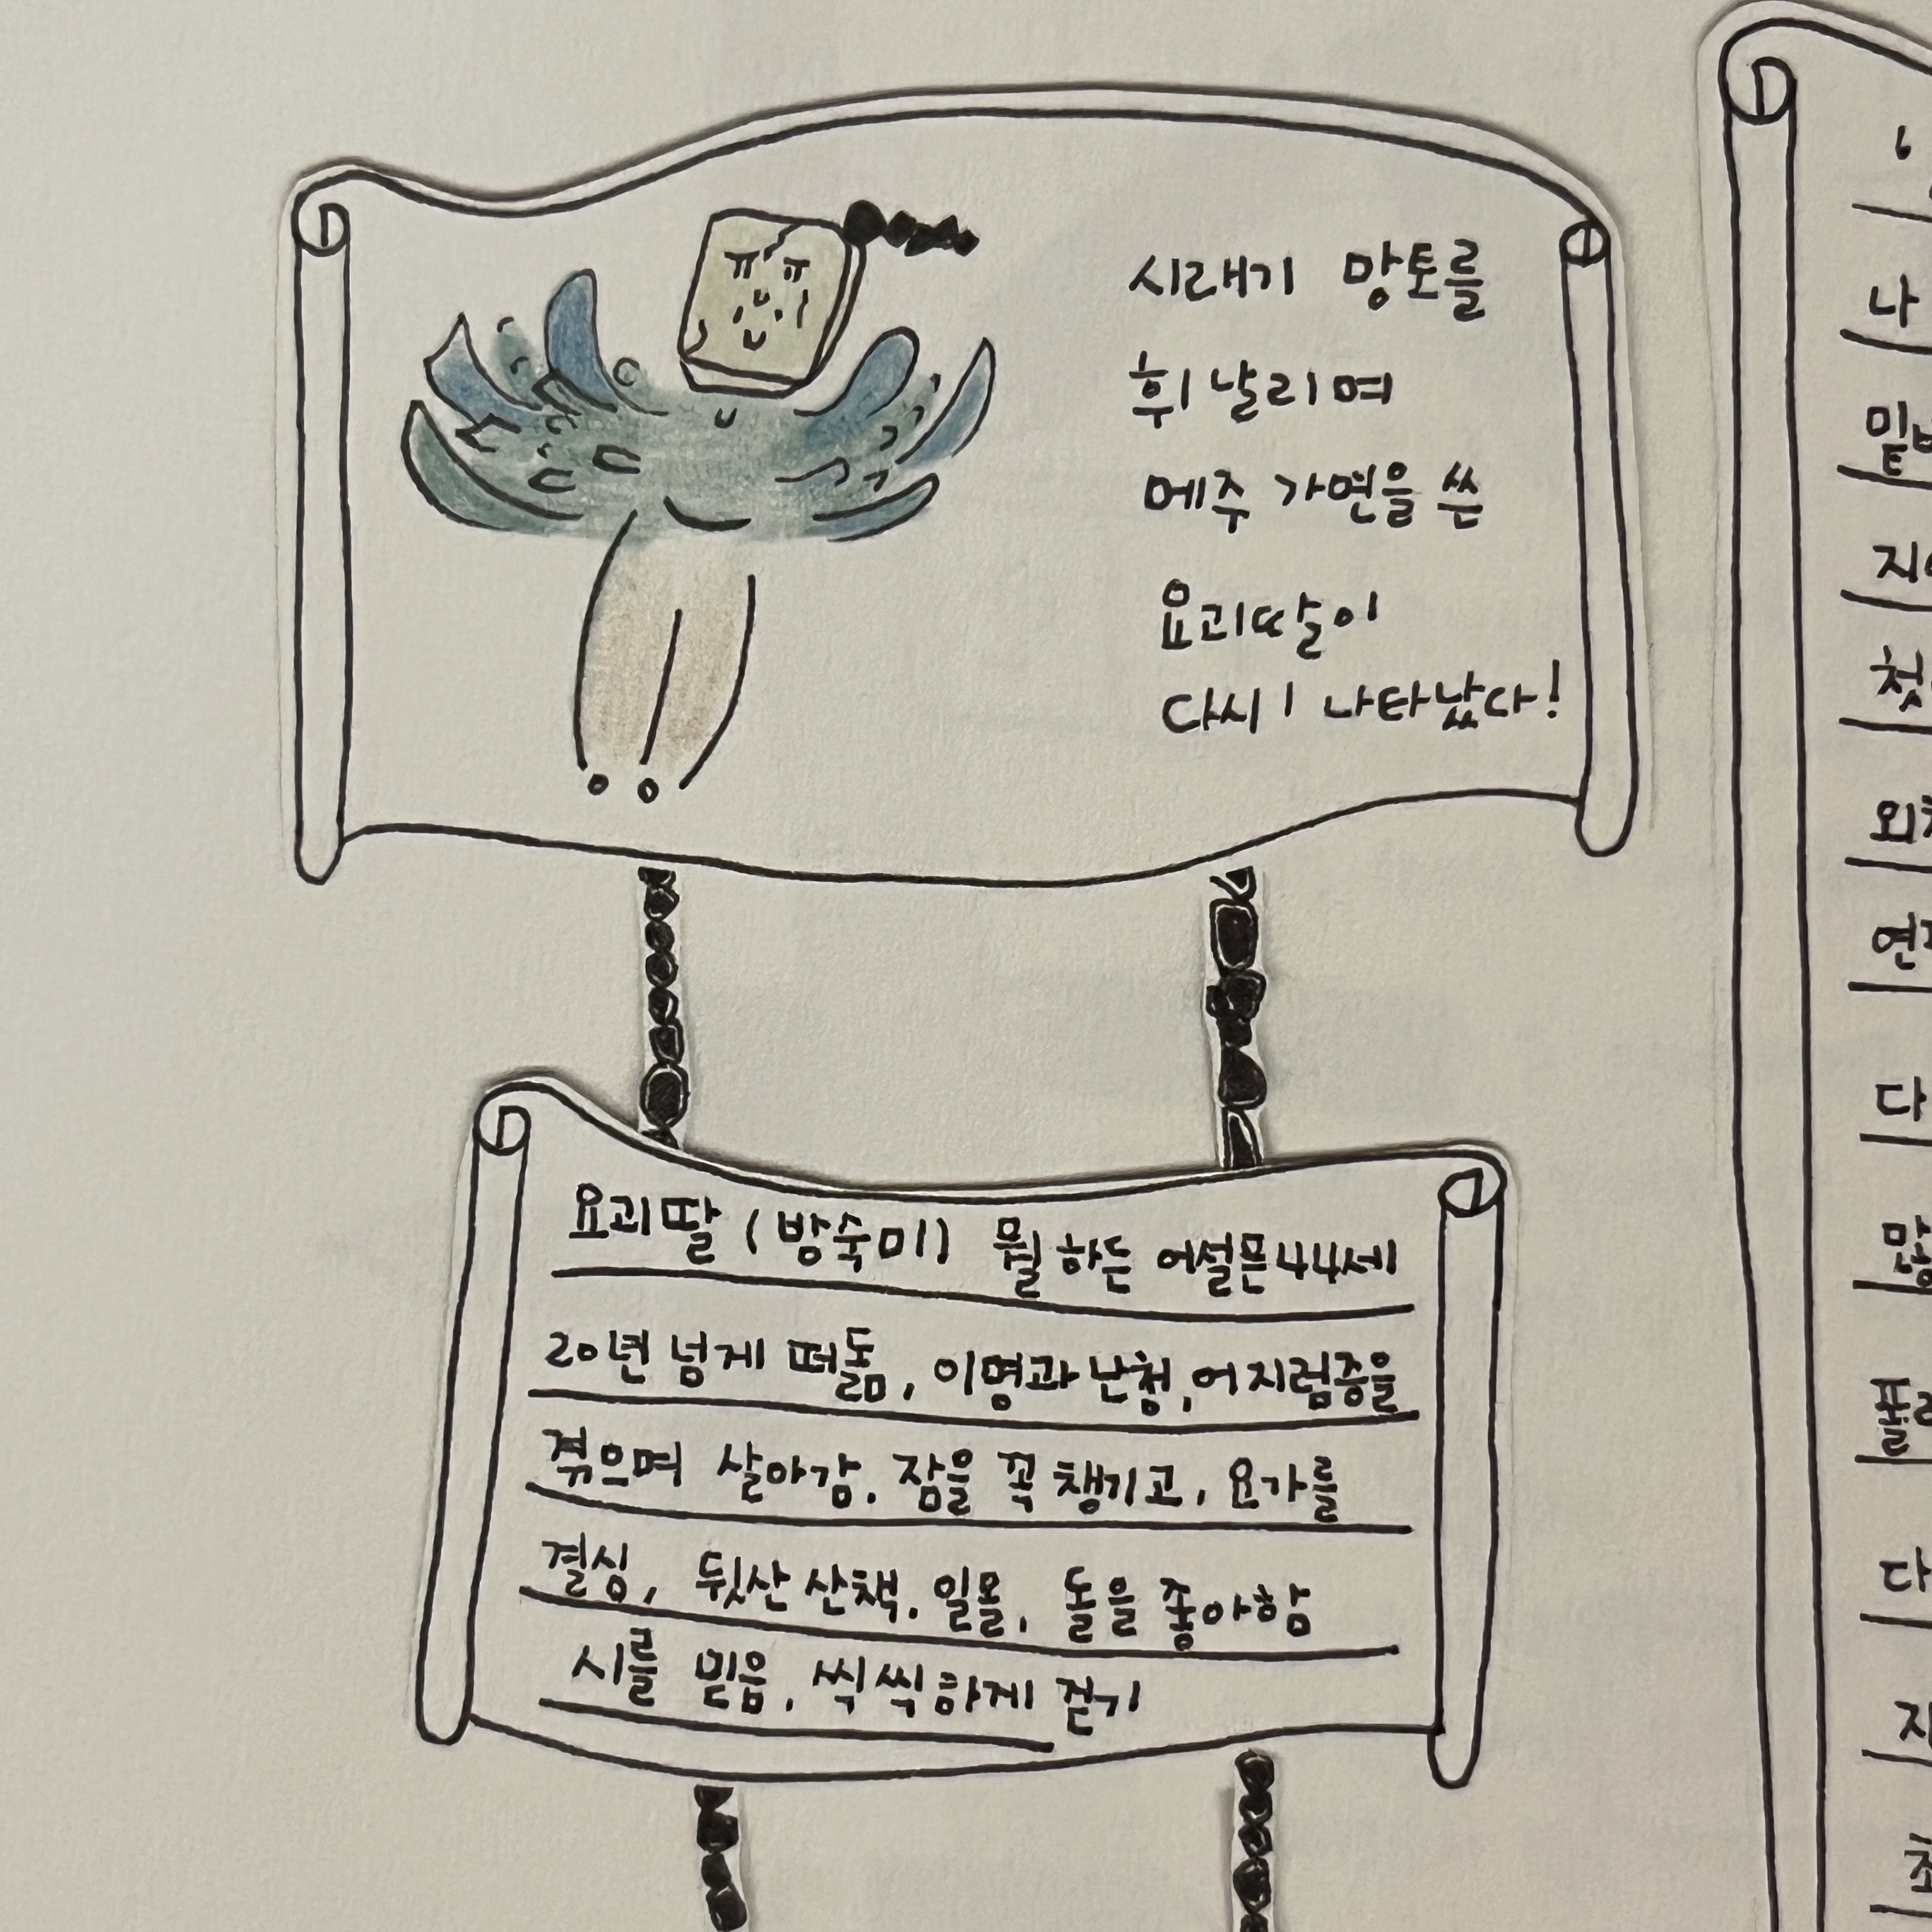 시래기 망토를
휘날리며
메주 가면을 쓴
요괴딸이
다시 나타났다!
요괴딸 (방숙미) 뭘하든 어설픈 44세
20년 넘게 떠돎, 이명과 난청, 어지럼증을
겪으며 살아감. 잠을 꼭 챙기고, 요가를
결싱, 뒷산 산책. 일몰, 돌을 좋아함
시를 믿음, 씩씩하게 걷기
나
지
다
다